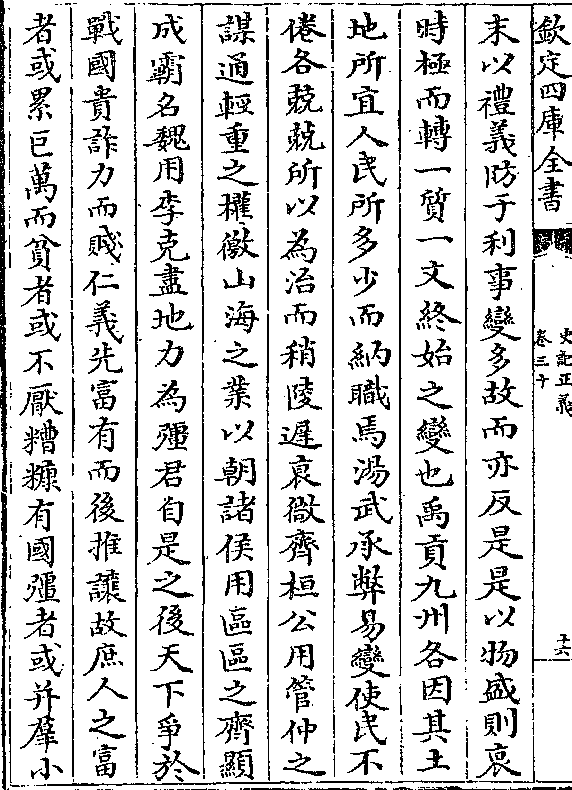 欽定四庫全書
史記正義
卷三十
十六
末以禮義防于利事變多故而亦反是是以物盛則衰
時極而轉一質一文終始之變也禹貢九州各因其土
地所宜人民所多少而納職焉湯武承弊易變使民不
倦各兢兢所以為治而稍陵遲衰微齊桓公用管仲之
謀通輕重之權徼山海之業以朝諸侯用區區之齊顯
成霸名魏用李克盡地力為彊君自是之後天下爭於
戰國貴詐力而賤仁義先富有而後推讓故庶人之富
者或累巨萬而貧者或不厭糟糠有國彊者或并羣小